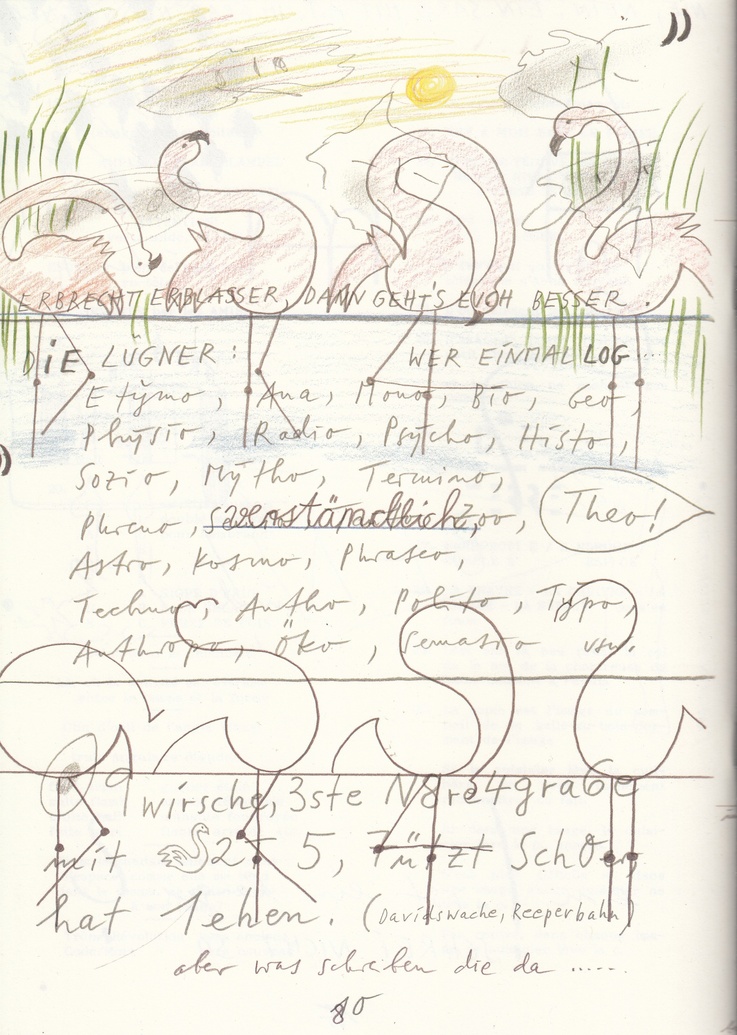 ERBRECHT ERBLASSER, DANN GEHT'S EUCH BESSER.
DiE LÜGNER: WER EINMAL LOG.....
Etymo, Ana, Mono, Bio, Geo,
Physio, Radio, Psycho, Histo,
Sozio, Mytho, Termino,
Phreno, selbstverständlich, Zoo, Theo!
Astro, Kosmo, Phraseo,
Techno, Autho, Polito, Typo,
Anthropo, Öko, Semasio usw.
9wirsche, 3ste N8re4gra6e
mit 2T 5, 7ützt Sch0er,
hat 1ehen. (Davidswache, Reeperbahn)
aber was schreiben die da .....
80